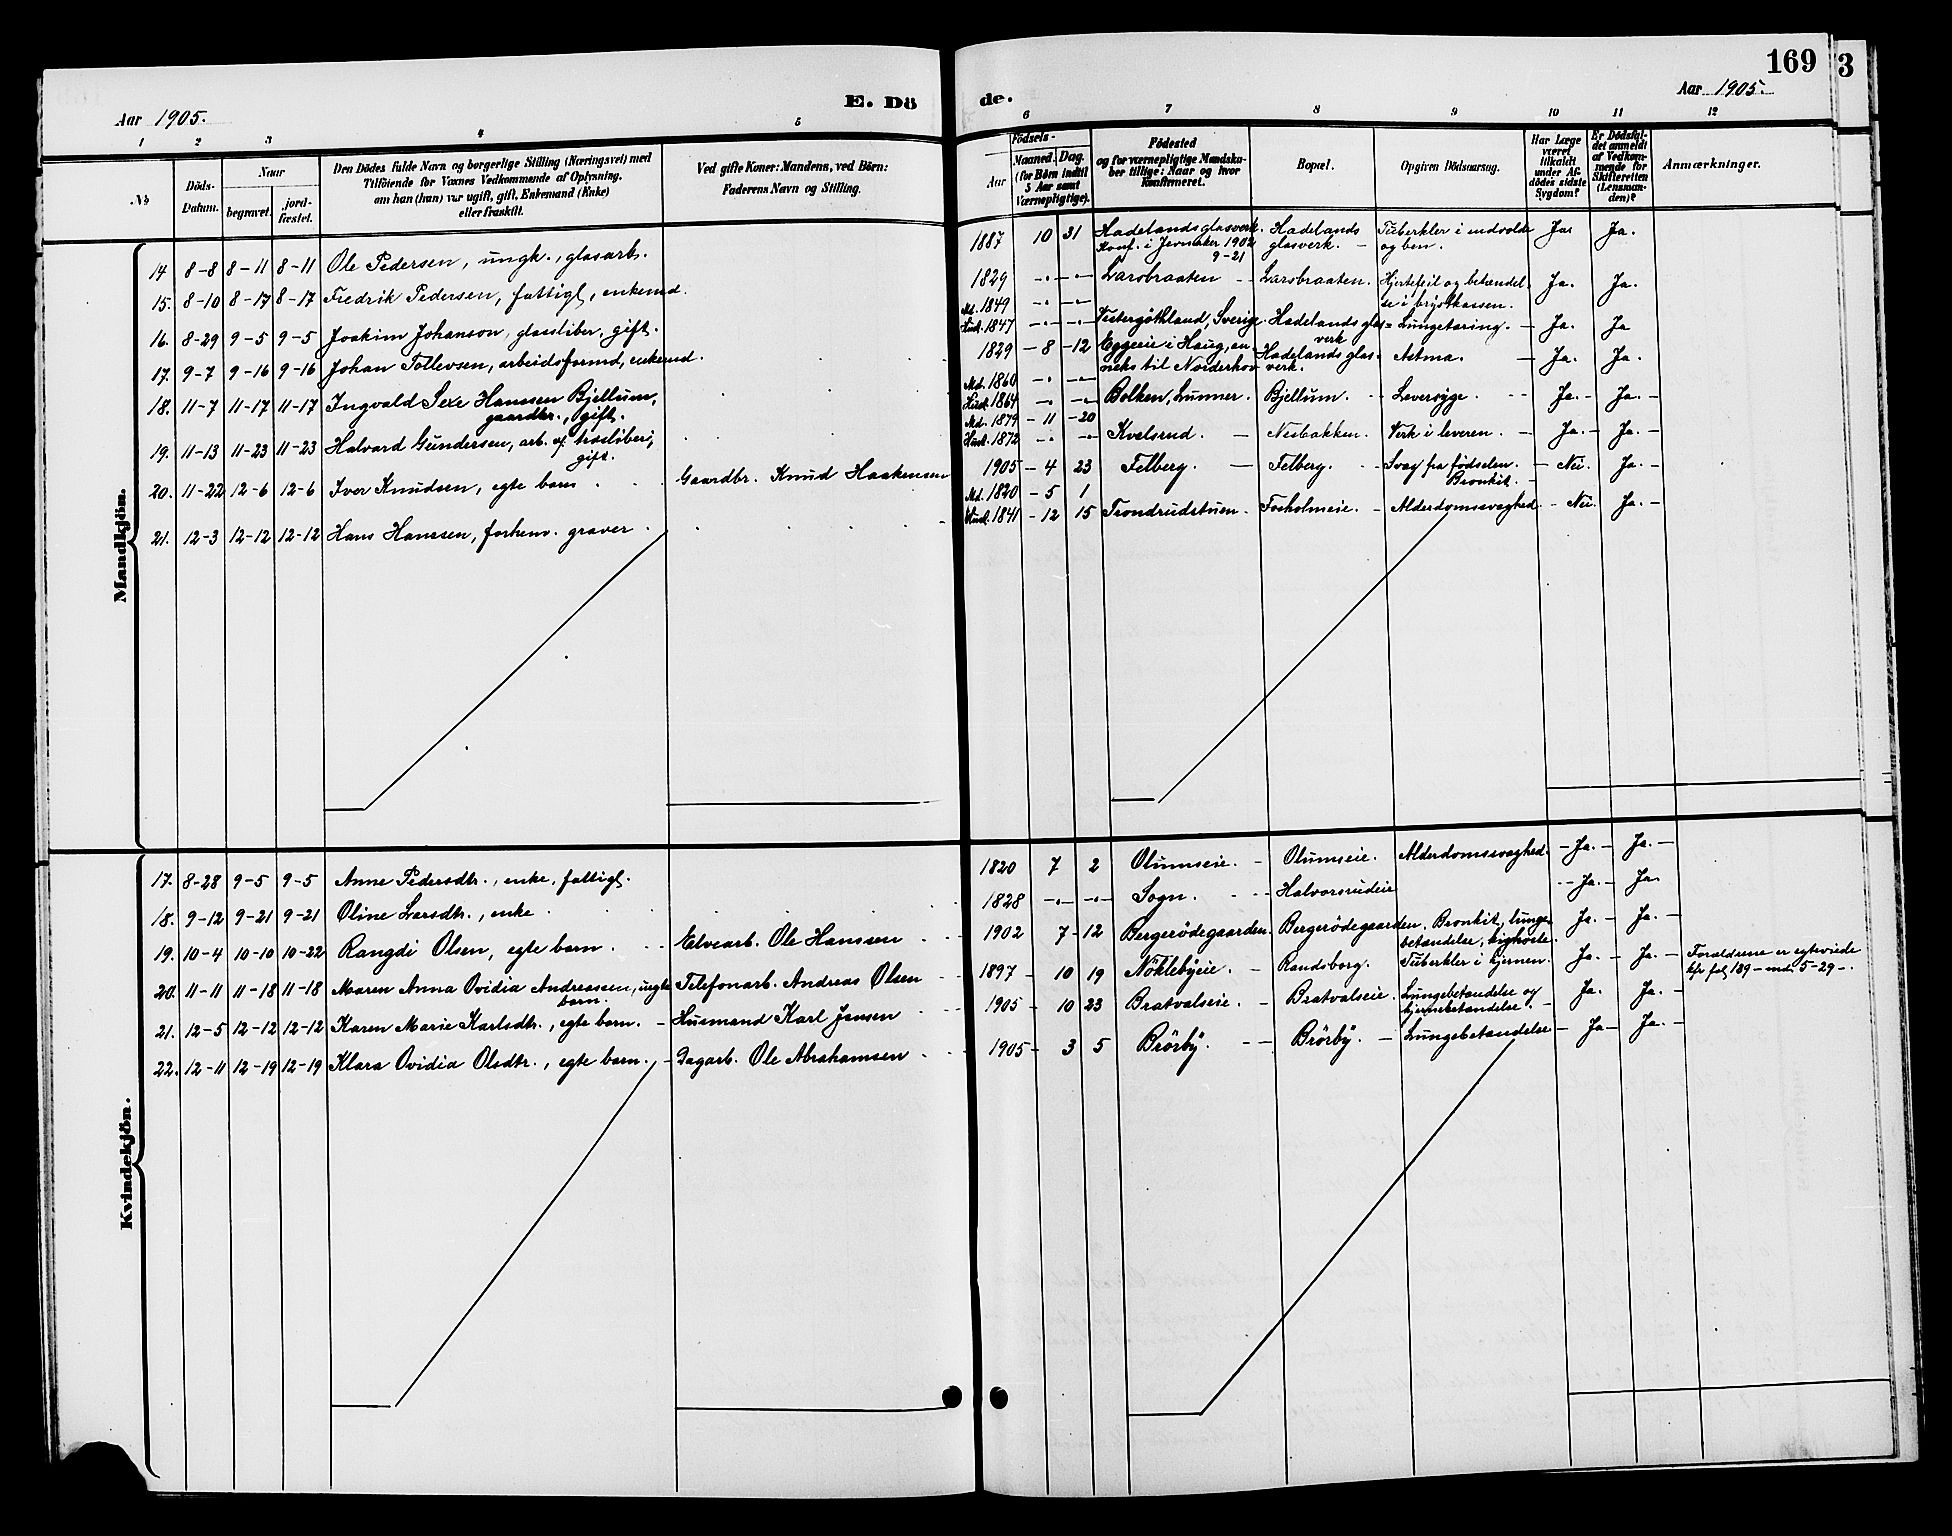 169
3
E. Dö de.
Aar 1905.
Aar 1905.
1 2 3 4 5 6 7 8 9 10 11 12
No
Döds-
Datum.
Naar
begravet.
jord-
fæstet.
Den Dödes fulde Navn og borgerlige Stilling (Næringsvei) med
Tilföiende for Voxnes Vedkommende af Oplysning,
om han (hun) var ugift, gift, Enkemand (Enke)
eller fraskilt.
Ved gifte Koner: Mandens, ved Börn:
Faderens Navn og Stilling.
Födsels-
Aar
Maaned. Dag.
(for Börn indtil
5 Aar samt
Værnepligtige).
Födested
og for værnepligtige Mandska-
ber tillige: Naar og hvor
konfirmeret.
Bopæl.
Opgiven Dödsaarsag.
Har Læge
været
tilkaldt
under Af-
dödes sidste
Sygdom?
Er Dödsfal-
det anmeldt
af Vedkom-
mende for
Skifteretten
(Lensman-
den)?
Anmærkninger.
Mandkjön.
14 8-8 8-11 8-11 Ole Pedersen, ungk., glasarb. 1887 10 31 Hadelandsglasverk. Konf. i Jevnaker 1902 9-21 Hadelands glasverk. Tuberkler i indvolde og ben. Ja. Ja.
15. 8-10 8-17 8-17 Fredrik Pedersen, fattigl., enkemd. 1829 Larsbraaten Larsbraaten. Hjertefeil og betændel- se i brystkassen. Ja. Ja.
16. 8-29 9-5 9-5 Joakim Johanson, glassliber, gift. Md. 1849 Hust. 1847 Vestergöthland, Sverige. Hadelands glas= verk Lungetæring. Ja. Ja
17. 9-7 9-16 9-16 Johan Tollevsen, arbeidsformd, enkemd. 1829 - 8 - 12 Eggeeie i Haug, an- neks til Norderhov Hadelands glas- verk. Astma. Ja. Ja.
18. 11-7 11-17 11-17 Ingvald Sexe Hanssen Bjellum, gaardbr., gift. Md. 1860 Hust. 1864 Bolken, Lunner. Bjellum. Leversyge. Ja. Ja.
19. 11-13 11-23 11-23 Halvard Gundersen, arb. v. træsliberi, gift. Md. 1879 - 11 - 20 Hust. 1872 Kvelsrud. Nesbakken. Verk i leveren. Ja. Ja.
20. 11-22 12-6 12-6 Iver Knudsen, egte barn Gaardbr. Knud Haakensen 1905 - 4 23 Felberg. Felberg. Svag fra födselen. Bronkit. Nei. Ja.
21. 12-3 12-12 12-12 Hans Hanssen, forhenv. graver Md. 1820 - 5 1 Hust. 1841 - 12 15 Trondrudstuen Fosholmeie. Alderdomssvaghed Nei. Ja.
Kvindekjön.
17. 8-28 9-5 9-5 Anne Pedersdtr., enke, fattigl. 1820 7 2 Olumseie. Olumseie. Alderdomssvaghed. Ja. Ja.
18. 9-12 9-21 9-21 Oline Larsdtr., enke 1828 Sogn. Halvorsrudeie Ja. Ja.
19. 10-4 10-10 10-22 Rangdi Olsen, egte barn. Elvearb. Ole Hanssen 1902 7-12 Bergerödegaarden. Bergerödegaarden. Bronkit, lunge- betændelse, kighoste. Ja. Ja.
20. 11-11 11-18 11-18 Maren Anna Ovidia Andreassen, uegte barn. Telefonarb. Andreas Olsen 1897 - 10 19 Nöklebyeie. Randsborg. Tuberkler i hjernen. Ja. Ja. Forældrene er egteviede kfr fol. 189 - md. 5-29 -.
21. 12-5 12-12 12-12 Karen Marie Karlsdtr., egte barn. Husmand Karl Jansen 1905 - 10 23 Bratvalseie. Bratvalseie. Lungebetændelse og hjernebetændelse. Ja. Ja.
22. 12-11 12-19 12-19 Klara Ovidia Olsdtr., egte barn. Dagarb. Ole Abrahamsen 1905 - 3 5 Brörby. Brörby. Lungebetændelse Ja Ja.